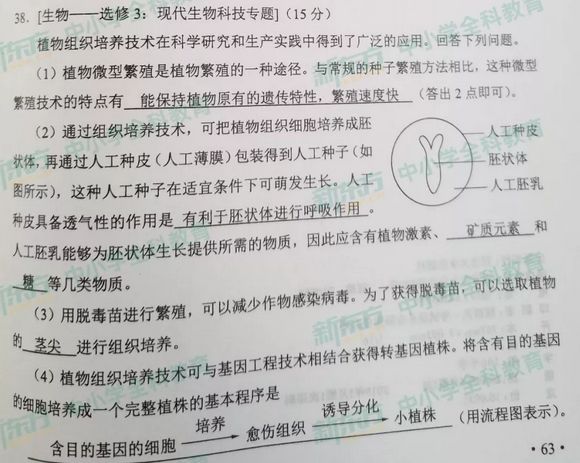 38. [生物——选修3：现代生物科技专题]（15分）
植物组织培养技术在科学研究和生产实践中得到了广泛的应用。回答下列问题。
（1）植物微型繁殖是植物繁殖的一种途径。与常规的种子繁殖方法相比，这种微型
繁殖技术的特点有 能保持植物原有的遗传特性，繁殖速度快 （答出2点即可）。
（2）通过组织培养技术，可把植物组织细胞培养成胚
状体，再通过人工种皮（人工薄膜）包装得到人工种子（如
图所示），这种人工种子在适宜条件下可萌发生长。人工
种皮具备透气性的作用是 有利于胚状体进行呼吸作用 。
人工胚乳能够为胚状体生长提供所需的物质，因此应含有植物激素、 矿质元素 和
糖 等几类物质。
人工种皮
胚状体
人工胚乳
（3）用脱毒苗进行繁殖，可以减少作物感染病毒。为了获得脱毒苗，可以选取植物
的 茎尖 进行组织培养。
（4）植物组织培养技术可与基因工程技术相结合获得转基因植株。将含有目的基因
的细胞培养成一个完整植株的基本程序是
含目的基因的细胞 培养 愈伤组织 诱导分化 小植株 （用流程图表示）。
·63·
新东方 中小学全科教育